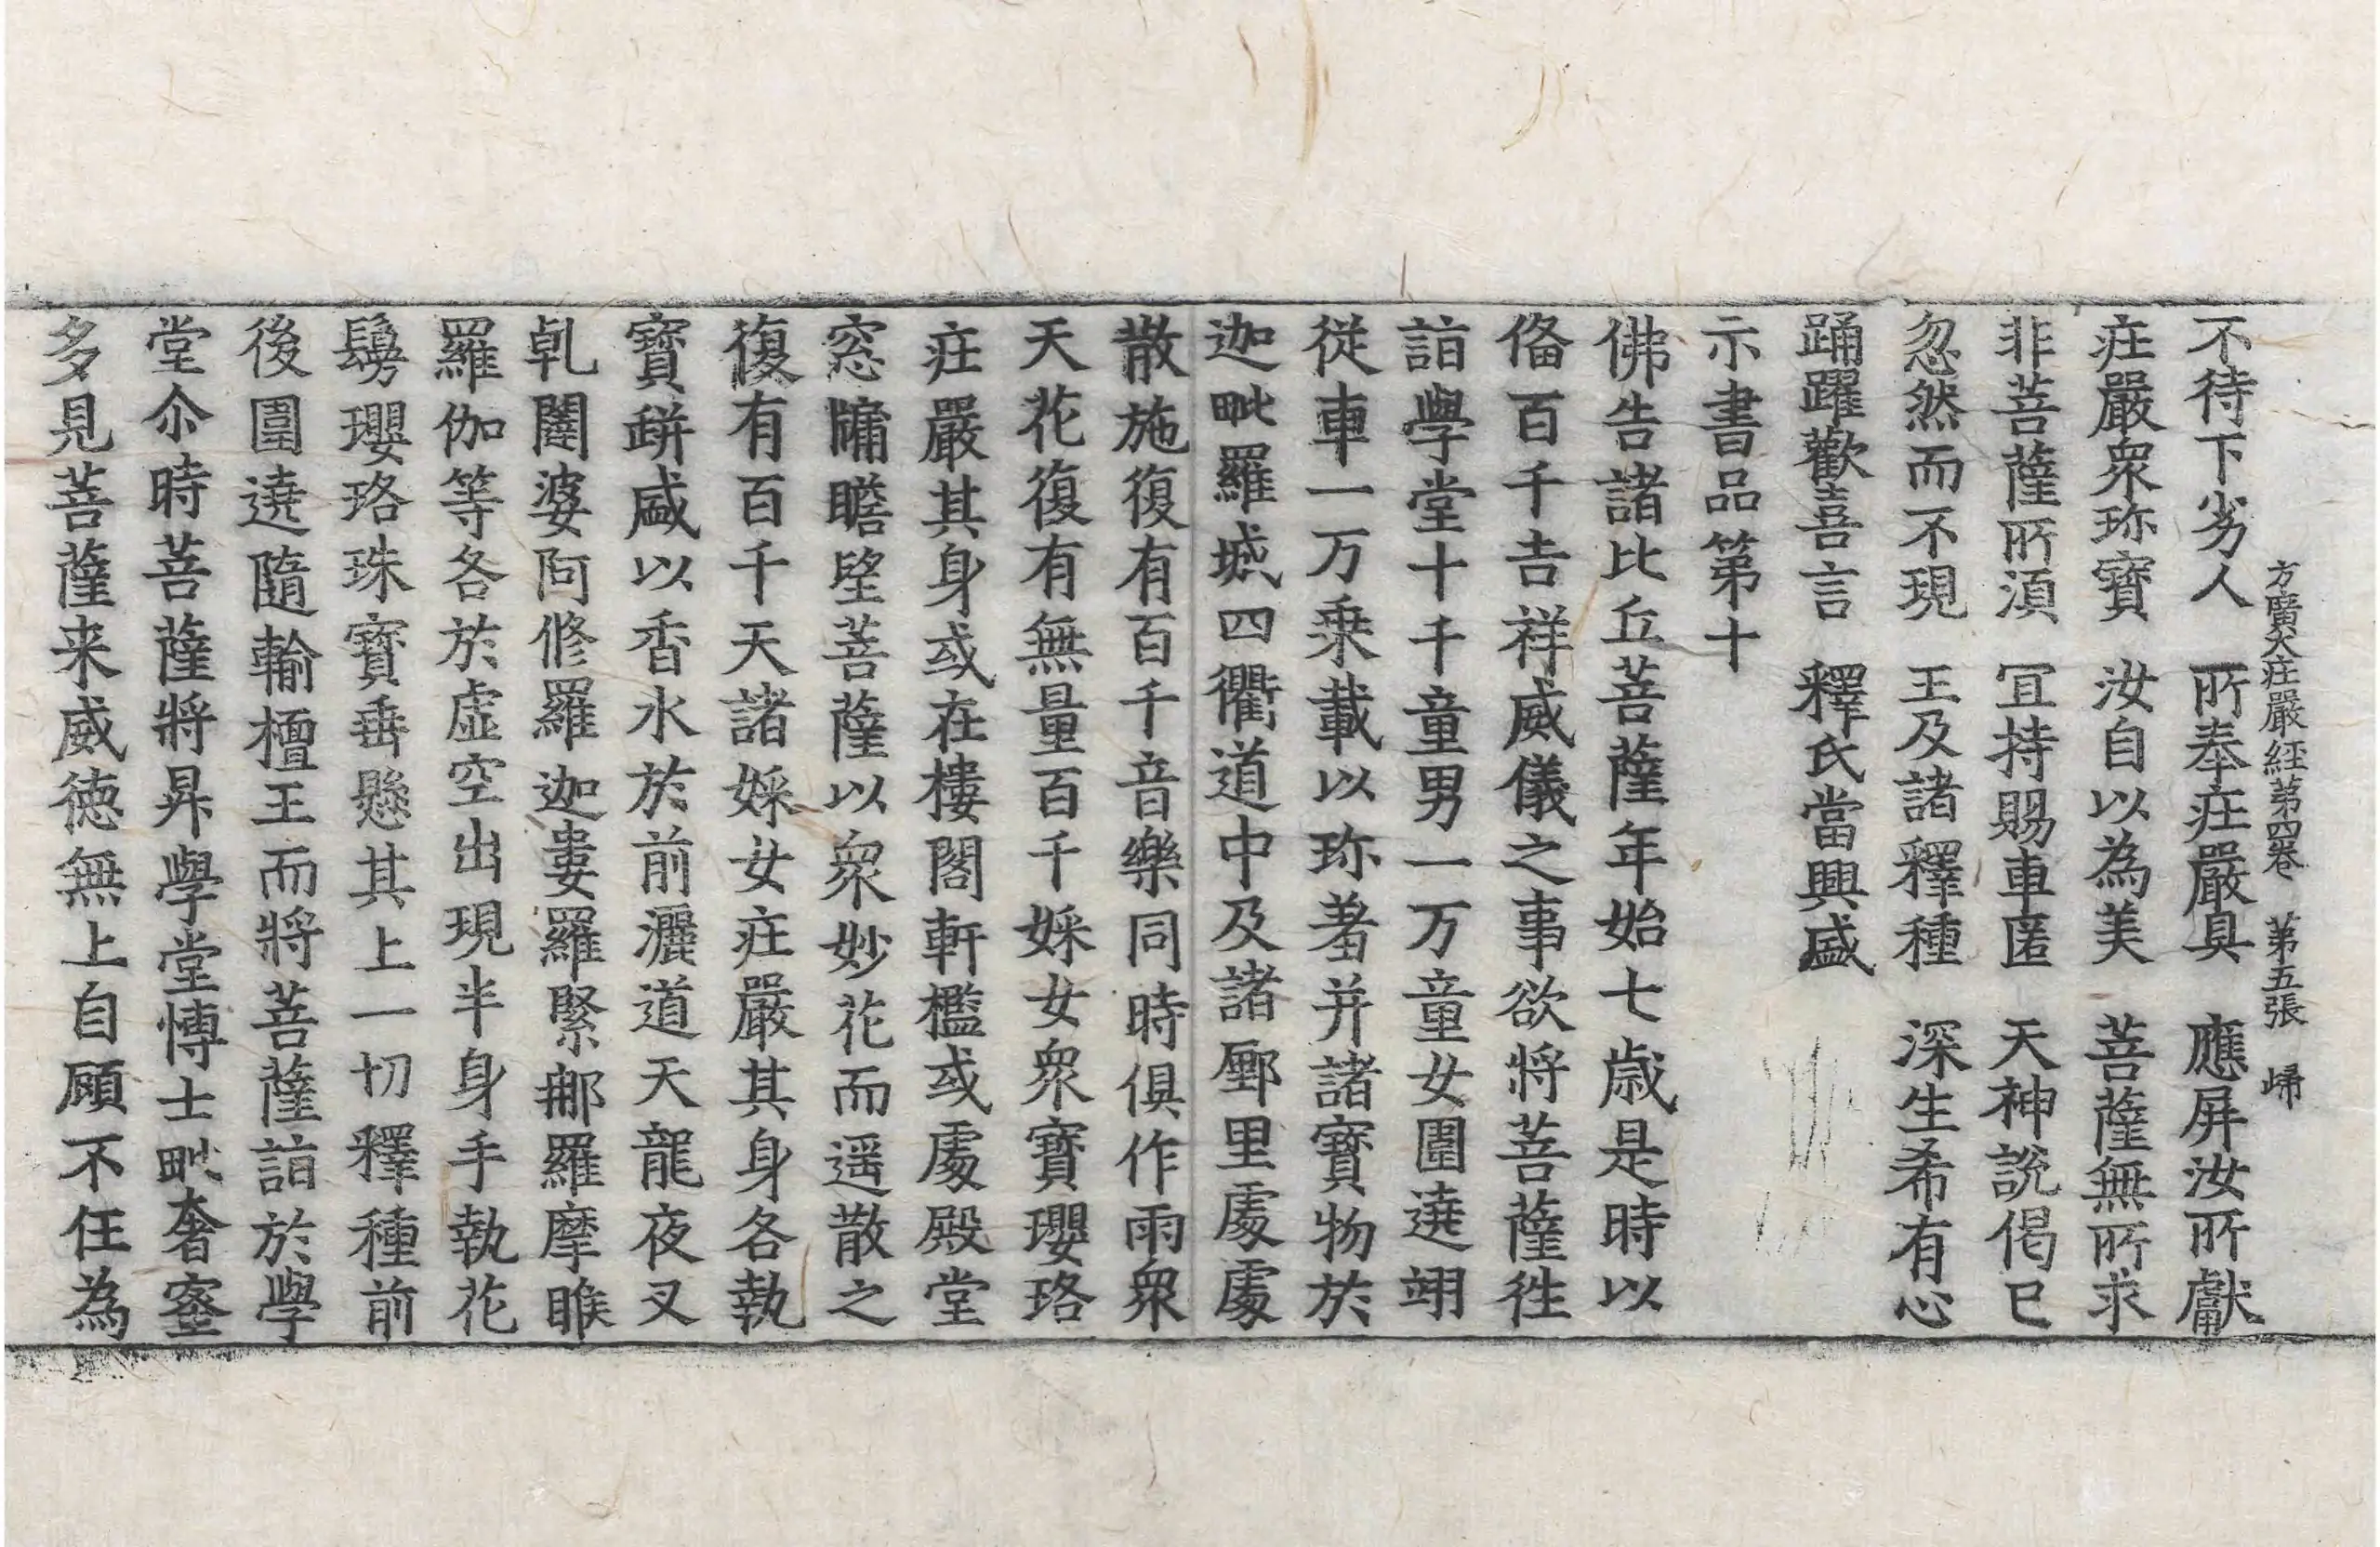 方廣大庄嚴経第四卷 第五張 㱕
不待下劣人 所奉庄嚴具 應屏汝所獻
庄嚴衆珎寶 汝自以為美 菩薩無所求
非菩薩所湏 冝持賜車匿 天神說偈已
忽然而不現 王及諸釋種 深生希有心
踊躍歡喜言 釋氏當興盛
示書品第十
佛告諸比丘菩薩年始七歲是時以
俻百千吉祥威儀之事欲將菩薩徃
詣學堂十千童男一万童女圍遶翊
従車一万乗載以珎羞并諸寶物於
迦毗羅城四衢道中及諸㕓里處處
散施復有百千音樂同時俱作雨衆
天花復有無量百千婇女衆寶瓔珞
庄嚴其身或在樓閣軒檻或處殿堂
窓牖瞻望菩薩以衆妙花而遥散之
復有百千天諸婇女庄嚴其身各執
寶缾盛以香水於前灑道天龍夜叉
乹闥婆阿脩羅迦婁羅緊那羅摩睺
羅伽等各於虛空出現半身手執花
鬘瓔珞珠寶垂懸其上一切釋種前
後圍遶隨輸檀王而將菩薩詣於學
堂尒時菩薩將昇學堂博士毗奢蜜
多見菩薩来威徳無上自顧不任為